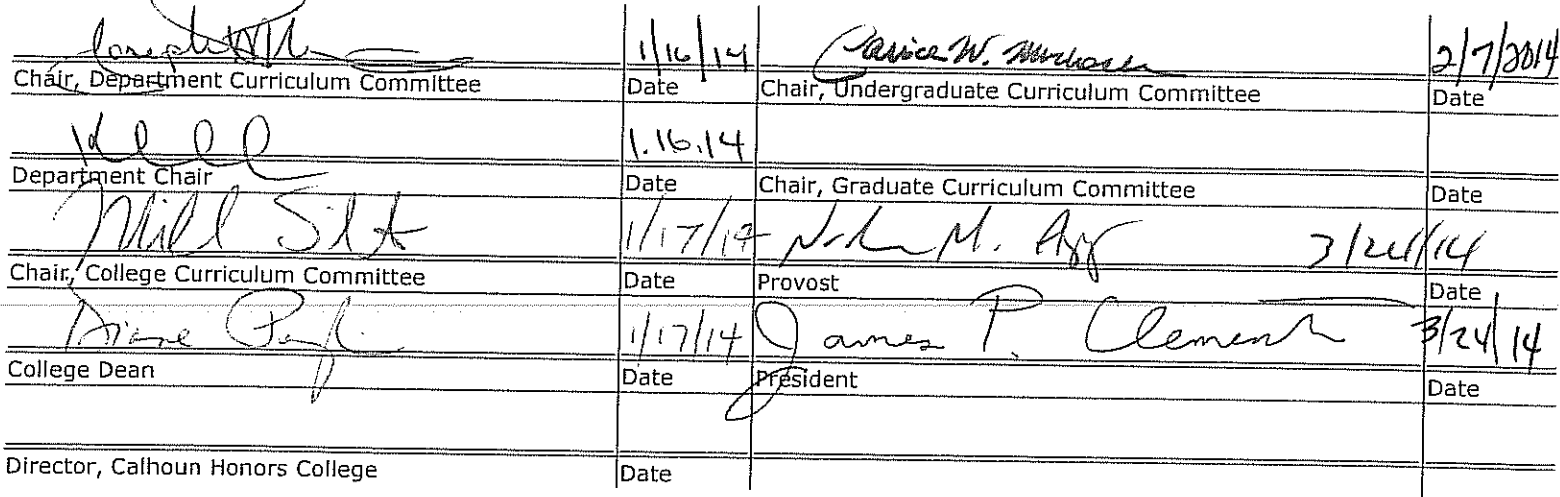 Joseph 1/16/14 Janice W. Murdoch 2/7/2014
Chair, Department Curriculum Committee Date Chair, Undergraduate Curriculum Committee Date
1.16.14
Department Chair Date Chair, Graduate Curriculum Committee Date
1/17/14 M. 3/24/14
Chair, College Curriculum Committee Date Provost Date
Diane 1/17/14 James P. Clements 3/24/14
College Dean Date President Date
Director, Calhoun Honors College Date